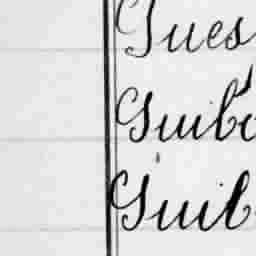 Gues
Guibo
Guil